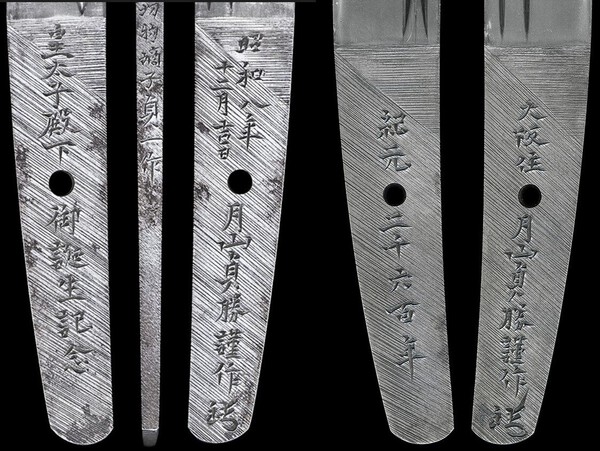 皇太子殿下御誕生記念
物嫡子貞一作
昭和八年
十二月吉日
月山貞勝謹作
紀元二千六百年
大阪住月山貞勝謹作